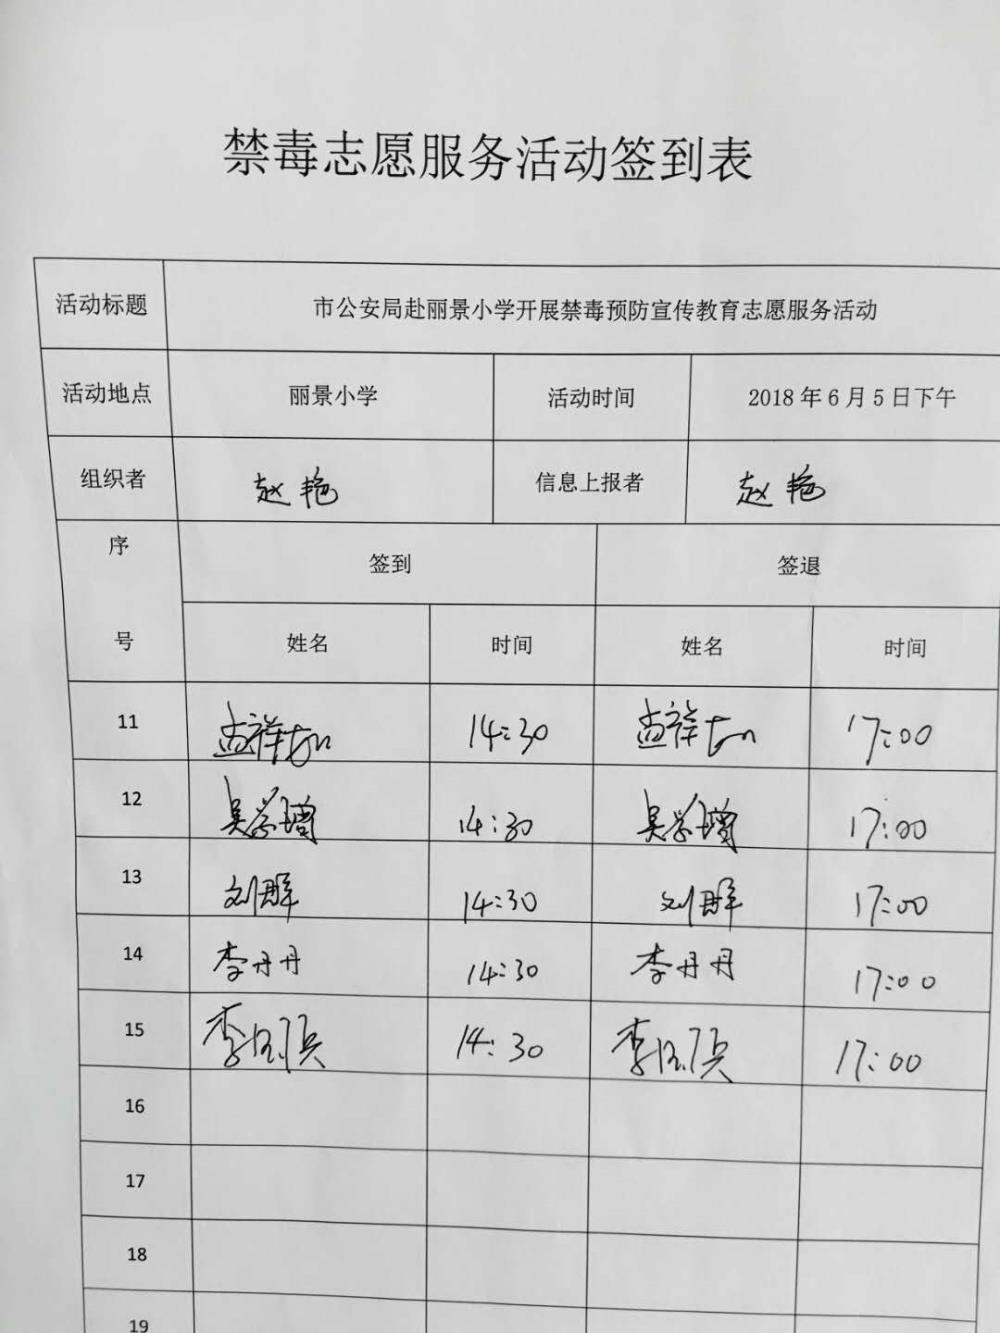 禁毒志愿服务活动签到表
活动标题 市公安局赴丽景小学开展禁毒预防宣传教育志愿服务活动
活动地点 丽景小学 活动时间 2018年6月5日下午
组织者 赵艳 信息上报者 赵艳
序号 签到 签退
姓名 时间 姓名 时间
11 孟祥 14:30 孟祥 17:00
12 吴学增 14:30 吴学增 17:00
13 刘群 14:30 刘群 17:00
14 李丹丹 14:30 李丹丹 17:00
15 李 14:30 李 17:00
16
17
18
19